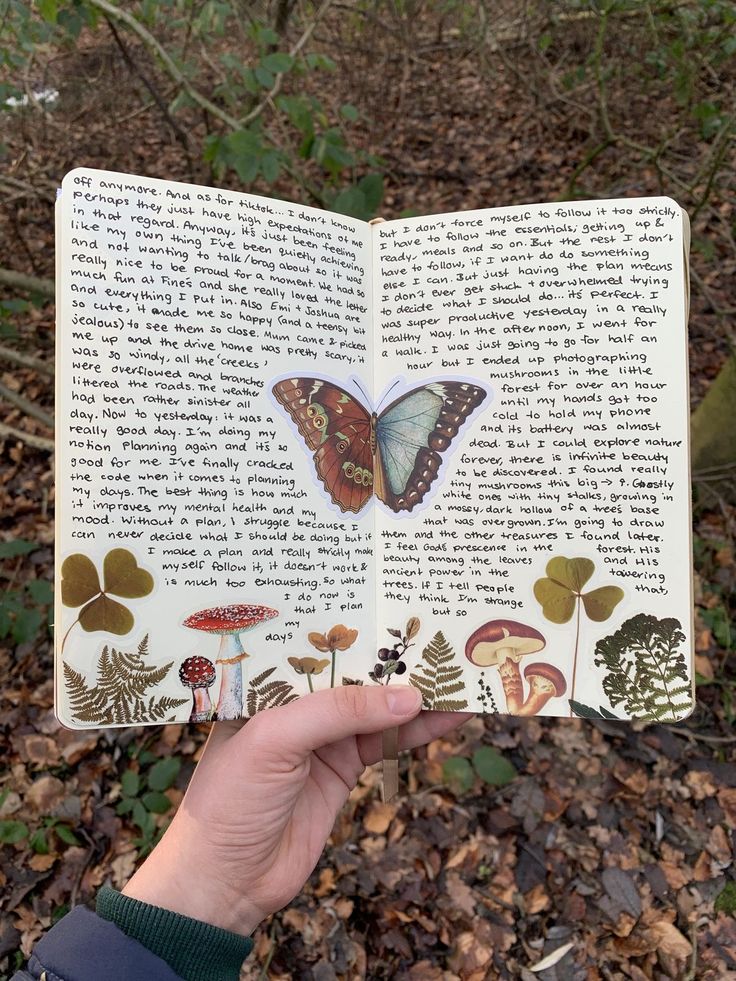 off anymore. And as for tiktok... I don't know
perhaps they just have high expectations of me
in that regard. Anyway, it's just been feeling
like my own thing I've been quietly achieving
and not wanting to talk/brag about so it was
really nice to be proud for a moment. We had so
much fun at Fine's and she really loved the letter
and everything I put in. Also Emi + Joshua are
so cute, it made me so happy (and a teensy bit
jealous) to see them so close. Mum came & picked
me up and the drive home was pretty scary, it
was so windy, all the 'creeks'
were overflowed and branches
littered the roads. The weather
had been rather sinister all
day. Now to yesterday: it was a
really good day. I'm doing my
notion planning again and it's so
good for me. I've finally cracked
the code when it comes to planning
my days. The best thing is how much
it improves my mental health and my
mood. Without a plan, i struggle because I
can never decide what I should be doing but if
I make a plan and really strictly make
myself follow it, it doesn't work &
is much too exhausting. So what
I do now is
that I plan
my
days
but I don't force myself to follow it too strictly.
I have to follow the essentials, getting up &
ready, meals and so on. But the rest I don't
have to follow, if I want do do something
else I can. But just having the plan means
I don't ever get stuck + overwhelmed trying
to decide what I should do... it's perfect. I
was super productive yesterday in a really
healthy way. In the afternoon, I went for
a walk. I was just going to go for half an
hour but I ended up photographing
mushrooms in the little
forest for over an hour
until my hands got too
cold to hold my phone
and its battery was almost
dead. But I could explore nature
forever, there is infinite beauty
to be discovered. I found really
tiny mushrooms this big → . Ghostly
white ones with tiny stalks, growing in
a mossy, dark hollow of a tree's base
that was overgrown. I'm going to draw
them and the other treasures I found later.
I feel God's prescence in the forest. His
beauty among the leaves and His
ancient power in the towering
trees. If I tell people that,
they think I'm strange
but so